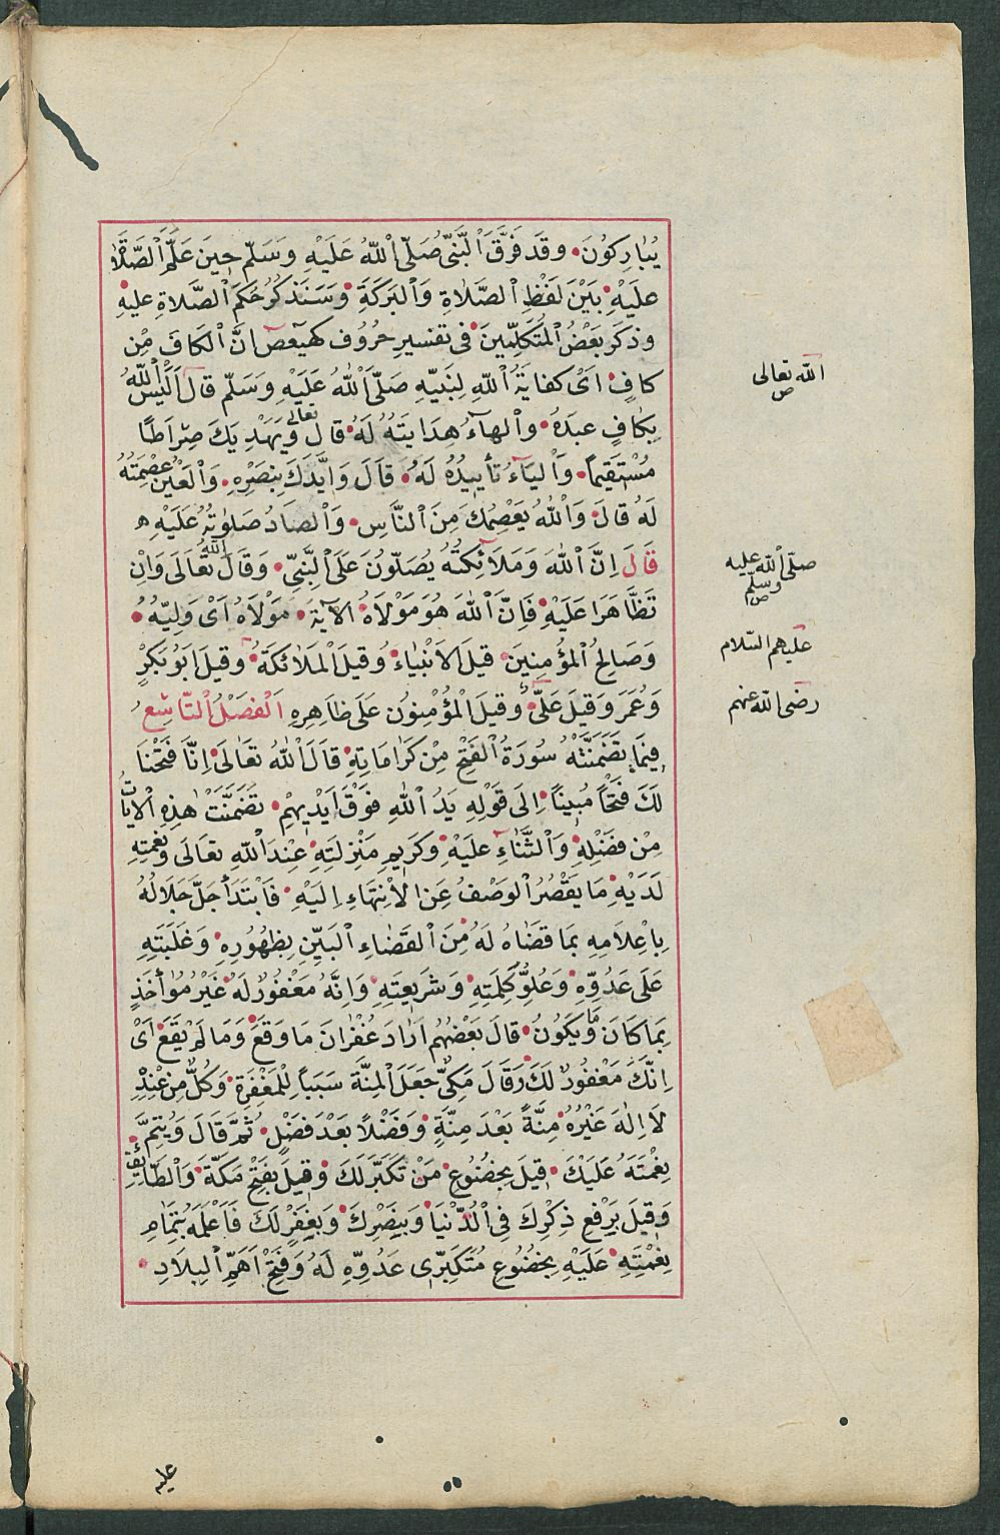 يُبَارِكُونَ وَقَدْ فَرَّقَ ٱلنَّبِيُّ صَلَّى ٱللهُ عَلَيْهِ وَسَلَّمَ حِينَ عَلَّمَ ٱلصَّلَاةَ
عَلَيْهِ بَيْنَ لَفْظِ ٱلصَّلَاةِ وَٱلْبَرَكَةِ وَسَنَذْكُرُ حُكْمَ ٱلصَّلَاةِ عَلَيْهِ
وَذَكَرَ بَعْضُ ٱلْمُتَكَلِّمِينَ فى تَفْسِيرِ حُرُوفِ كهيعص اَنَّ ٱلْكَافَ مِنْ
كافٍ اَىْ كِفَايَةُ ٱللهِ لِنَبِيِّهِ صَلَّى ٱللهُ عَلَيْهِ وَسَلَّمَ قَالَ اَلَيْسَ ٱللهُ
بِكَافٍ عَبْدَهُ وَٱلْهَاءَ هِدَايَتُهُ لَهُ قَالَ تعالى وَيَهْدِيَكَ صِرَاطًا
مُسْتَقِيمًا وَٱلْيَاءَ تَأْيِيدُهُ لَهُ قَالَ وَاَيَّدَكَ بِنَصْرِهِ وَٱلْعَيْنَ عِصْمَتُهُ
لَهُ قَالَ وَٱللهُ يَعْصِمُكَ مِنَ ٱلنَّاسِ وَٱلصَّادَ صَلَوٰتُهُ عَلَيْهِ
قَالَ اِنَّ ٱللهَ وَمَلَائِكَتَهُ يُصَلُّونَ عَلَى ٱلنَّبِيِّ وَقَالَ ٱلله تَعَالَى وَاِنْ
تَظَّاهَرَا عَلَيْهِ فَاِنَّ ٱللهَ هُوَ مَوْلَاهُ الْآيَةَ مَوْلَاهُ اَىْ وَلِيُّهُ
وَصَالِحُ ٱلْمُؤْمِنِينَ قِيلَ الْاَنْبِيَاءُ وَقِيلَ الْمَلَائِكَةُ وَقِيلَ اَبُو بَكْرٍ
وَعُمَرَ وَقِيلَ عَلِيٌّ وَقِيلَ الْمُؤْمِنُونَ عَلَى ظَاهِرِهِ اَلْفَصْلُ ٱلتَّاسِعُ
فِيمَا تَضَمَّنَتْهُ سُورَةُ ٱلْفَتْحِ مِنْ كَرَامَاتِهِ قَالَ ٱللهُ تَعَالَى اِنَّا فَتَحْنَا
لَكَ فَتْحًا مُبِينًا اِلَى قَوْلِهِ يَدُ ٱللهِ فَوْقَ اَيْدِيهِمْ تَضَمَّنَتْ هٰذِهِ ٱلْآيَاتُ
مِنْ فَضْلِهِ وَٱلثَّنَاءِ عَلَيْهِ وَكَرِيمِ مَنْزِلَتِهِ عِنْدَ ٱللهِ تَعَالَى وَنِعْمَتِهِ
لَدَيْهِ مَا يَقْصُرُ ٱلْوَصْفُ عَنِ الْاِنْتِهَاءِ اِلَيْهِ فَابْتَدَأَ جَلَّ جَلَالُهُ
بِاِعْلَامِهِ بِمَا قَضَاهُ لَهُ مِنَ ٱلْقَضَاءِ ٱلْبَيِّنِ بِظُهُورِهِ وَغَلَبَتِهِ
عَلَى عَدُوِّهِ وَعُلُوِّ كَلِمَتِهِ وَشَرِيعَتِهِ وَاَنَّهُ مَغْفُورٌ لَهُ غَيْرُ مُوأَخَذٍ
بِمَا كَانَ وَمَا يَكُونُ قَالَ بَعْضُهُمْ اَرَادَ غُفْرَانَ مَا وَقَعَ وَمَا لَمْ يَقَعْ اَىْ
اِنَّكَ مَغْفُورٌ لَكَ وَقَالَ مَكِّىٌّ جَعَلَ ٱلْمِنَّةَ سَبَبًا لِلْمَغْفِرَةِ وَكُلٌّ مِنْ عِنْدِهِ
لَا اِلٰهَ غَيْرُهُ مِنَّةً بَعْدَ مِنَّةٍ وَفَضْلًا بَعْدَ فَضْلٍ ثُمَّ قَالَ وَيُتِمَّ
نِعْمَتَهُ عَلَيْكَ قِيلَ بِخُضُوعِ مَنْ تَكَبَّرَ لَكَ وَقِيلَ بِفَتْحِ مَكَّةَ وَٱلطَّائِفِ
وَقِيلَ يَرْفَعِ ذِكْرِكَ فِى ٱلدُّنْيَا وَيَنْصُرِكَ وَيَغْفِرْ لَكَ فَاَعْلَمَهُ بِتَمَامِ
نِعْمَتِهِ عَلَيْهِ بِخُضُوعِ مُتَكَبِّرِى عَدُوِّهِ لَهُ وَفَتْحِ اَهَمِّ ٱلْبِلَادِ
الله تعالى
ص
صلّى ٱلله عليه
وسلّم
ص
عليهم السّلام
رضى الله عنهم
عليه